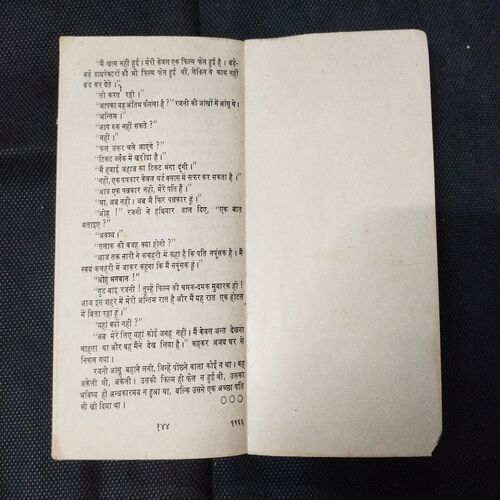 "मैं खत्म नहीं हुई। मेरी केवल एक फिल्म फेल हुई है। बड़े-
बड़े डायरेक्टरों की भी फिल्म फेल हुई थीं, लेकिन वे काम नहीं
बंद कर देते।"
"तो करते रहो।"
"आपका यह अंतिम फैसला है?" रजनी की आंखों में आंसू थे।
"अन्तिम।"
"आप रुक नहीं सकते?"
"नहीं।"
"कल जरूर चले जाएंगे?"
"टिकट ब्लैक में खरीदा है।"
"मैं हवाई जहाज का टिकट मंगा दूंगी।"
"नहीं, एक पत्रकार केवल थर्ड क्लास में सफर कर सकता है।"
"आप एक पत्रकार नहीं, मेरे पति हैं।"
"था, अब नहीं। अब मैं फिर पत्रकार हूं।"
"ओह!" रजनी ने हथियार डाल दिए, "एक बात
बताइए?"
"अवश्य।"
"तलाक की वजह क्या होगी?"
"आज तक नारी ने कचहरी में कहा है कि पति नपुंसक है। मैं
स्वयं कचहरी में जाकर कहूंगा कि मैं नपुंसक हूं।"
"ओह भगवान!"
"गुड बाइ रजनी! तुम्हें फिल्म की चमक-दमक मुबारक हो!
आज इस शहर में मेरी अन्तिम रात है और मैं यह रात एक होटल
में बिता रहा हूं।"
"यहां क्यों नहीं?"
"अब मेरे लिए यहां कोई जगह नहीं। मैं केवल अन्त देखना
चाहता था और वह मैंने देख लिया है।" कहकर अजय घर से
निकल गया।
रजनी आंसू बहाने लगी, जिन्हें पोंछने वाला कोई न था। वह
अकेली थी, अकेली। उसकी फिल्म ही फेल न हुई थी, उसका
भविष्य ही अन्धकारमय न हुआ था, बल्कि उसने एक अच्छा पति
भी खो दिया था। ○○○
१४४ १९६६